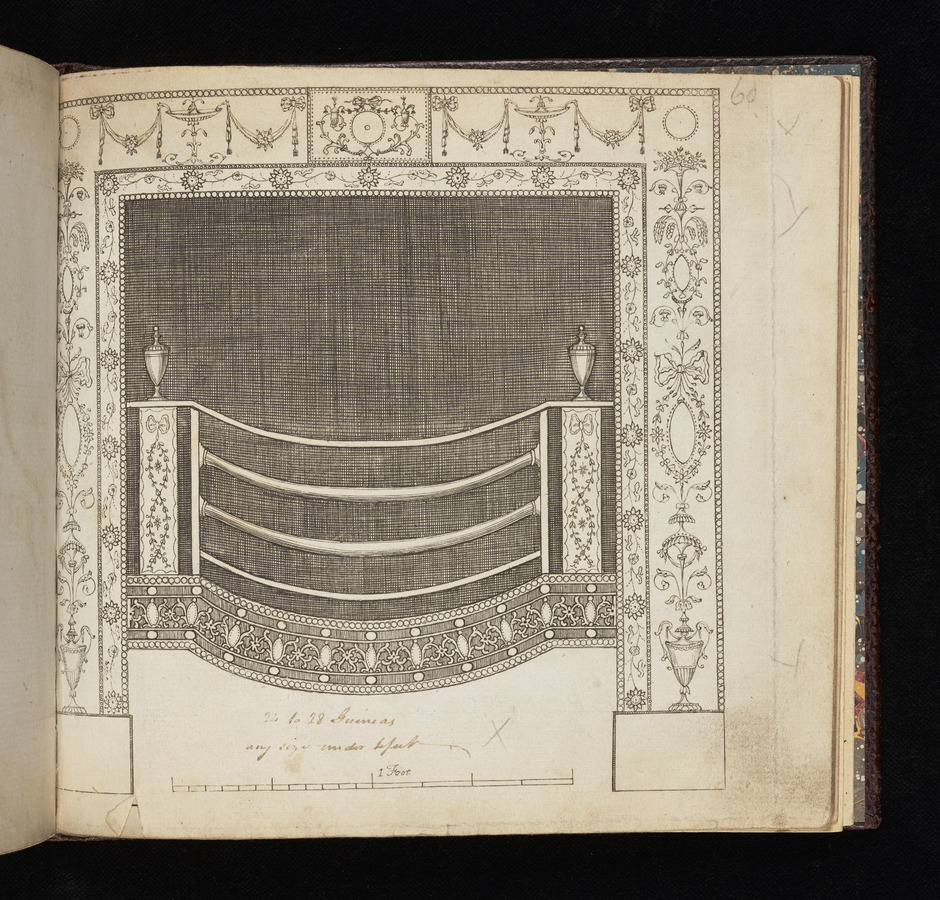 60
24 to 28 Guineas
any size under
1 Foot